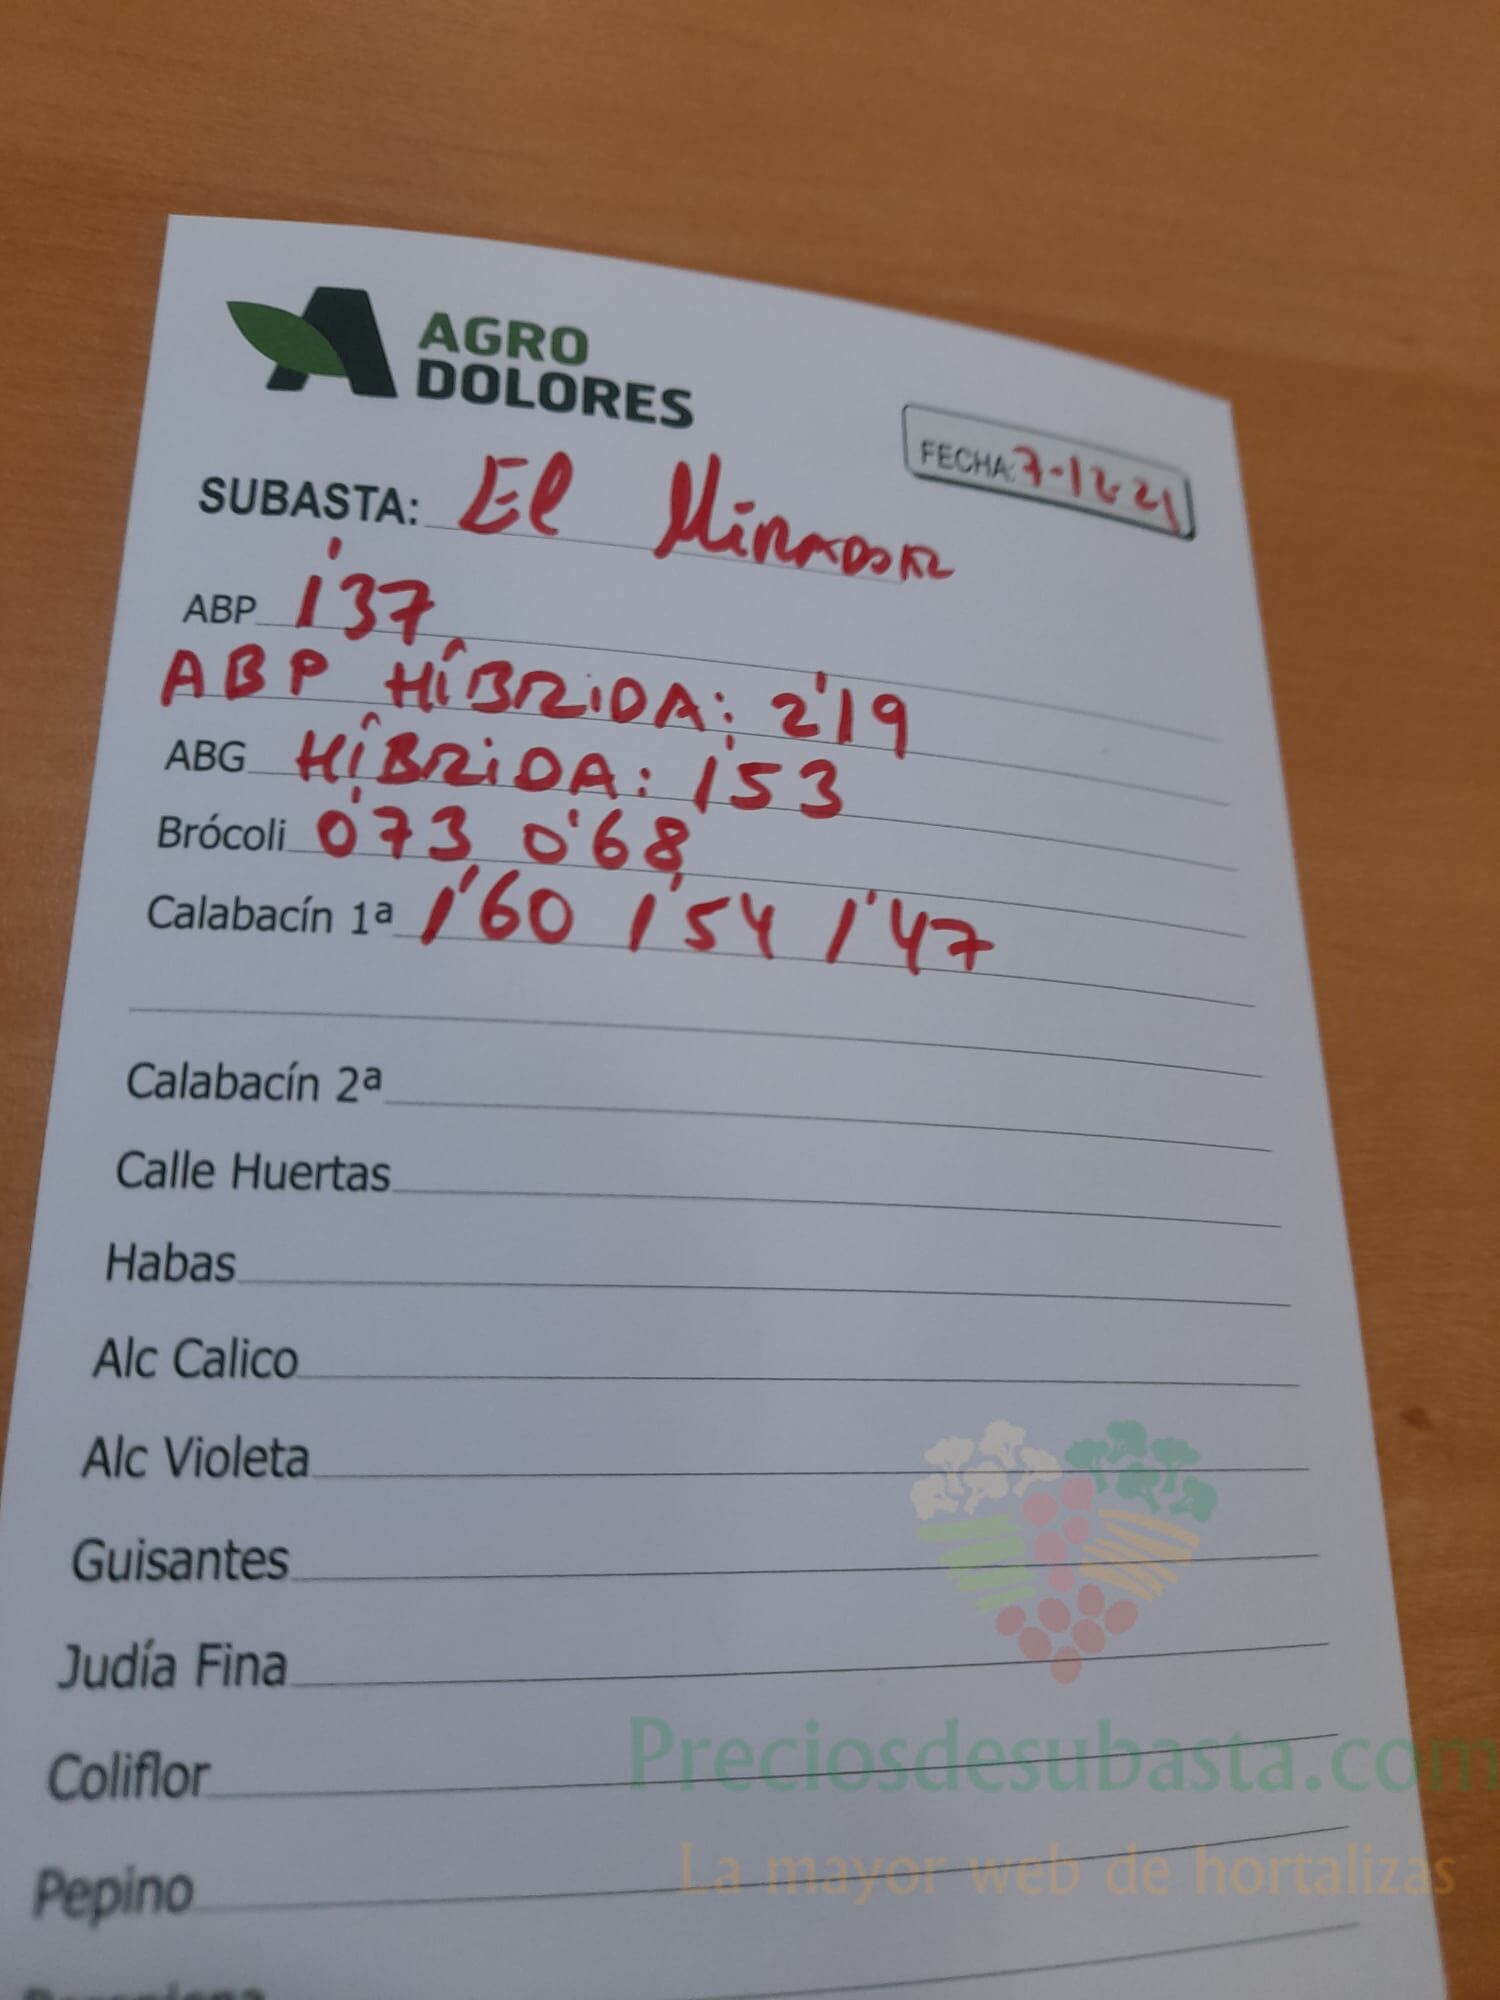 AGRO
DOLORES
FECHA: 7-12-21
SUBASTA: El Mirador
ABP 1'37
ABP HÍBRIDA: 2'19
ABG HÍBRIDA: 1'53
Brócoli 0'73 0'68
Calabacín 1ª 1'60 1'54 1'47
Calabacín 2ª
Calle Huertas
Habas
Alc Calico
Alc Violeta
Guisantes
Judía Fina
Coliflor
Preciosdesubasta.com
La mayor web de hortalizas
Pepino